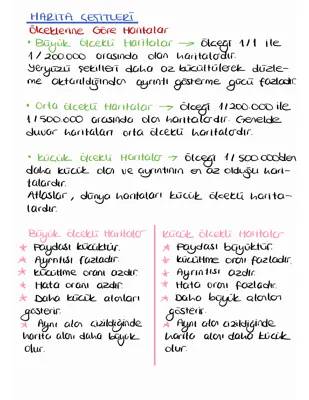 HARİTA ÇEŞİTLERİ
Ölçeklerine Göre Haritalar
• Büyük Ölçekli Haritalar → ölçeği 1/1 ile
1/200.000 arasında olan haritalardır.
Yeryüzü şekilleri daha az küçültülerek düzle-
me aktarıldığından ayrıntı gösterme gücü fazladır.
• Orta ölçekli Haritalar → Ölçeği 1/200.000 ile
1/500.000 arasında olan haritalardır. Genelde
duvar haritaları orta ölçekli haritalardır.
• Küçük ölçekli Haritalar → ölçeği 1/500.000'den
daha küçük olan ve ayrıntının en az olduğu hari-
talardır.
Atlaslar, dünya haritaları küçük ölçekli harita-
lardır.
Büyük ölçekli Haritalar
* Paydası küçüktür.
* Ayrıntısı fazladır.
* Küçültme oranı azdır.
* Hata oranı azdır.
* Daha küçük alanları
gösterir.
* Aynı alan çizildiğinde
harita alanı daha büyük
olur.
Küçük ölçekli Haritalar
* Paydası büyüktür.
* Küçültme oranı fazladır.
* Ayrıntısı azdır.
* Hata oranı fazladır.
* Daha büyük alanları
gösterir.
* Aynı alan çizildiğinde
harita alanı daha küçük
olur.